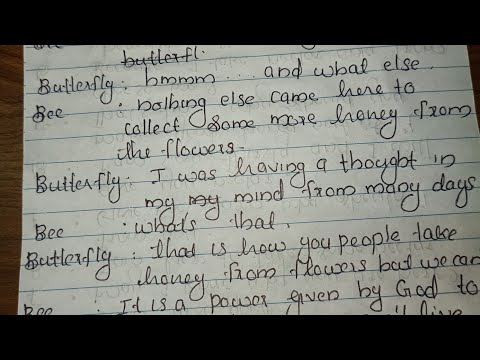 butterfl.
Butterfly : hmmm ... and what else.
Bee : nothing else came here to
collect some more honey from
the flowers.
Butterfly : I was having a thought in
my my mind from many days
Bee : whats that.
Butterfly : that is how you people take
honey from flowers but we can
Bee : It is a power given by God to